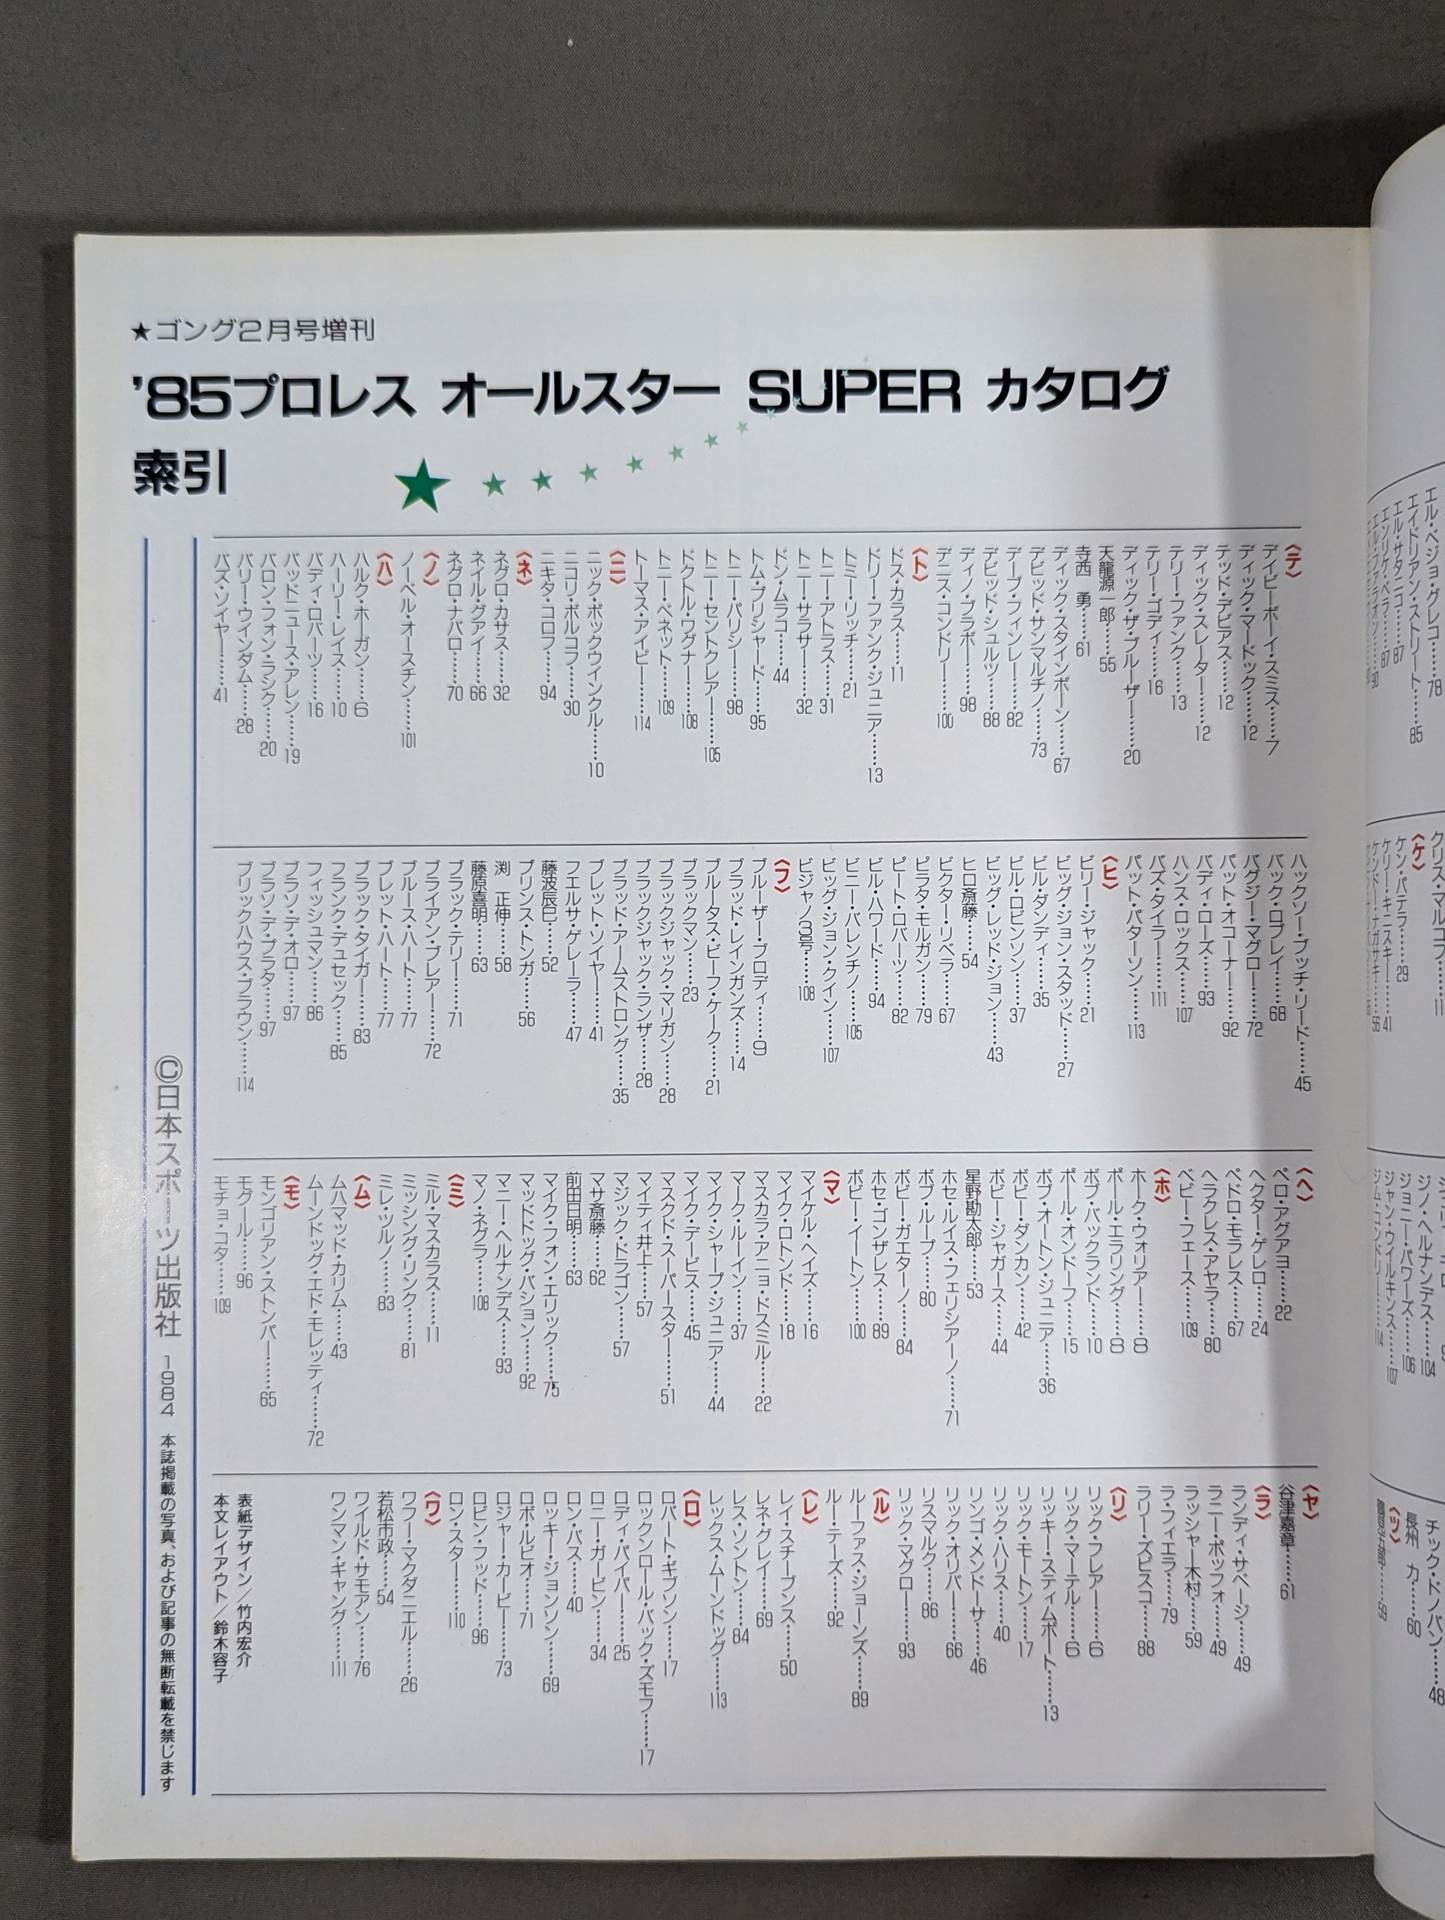 ★ゴング2月号増刊
'85プロレス オールスター SUPER カタログ
索引
〈テ〉
デイビーボーイ・スミス……7
ディック・マードック……12
テッド・デビアス……12
ディック・スレーター……12
テリー・ファンク……13
テリー・ゴディ……16
ディック・ザ・ブルーザー……20
天龍源一郎……55
寺西 勇……61
ディック・スタインボーン……67
デビッド・サンマルチノ……73
デーブ・フィンレー……82
デビッド・シュルツ……88
ディノ・ブラボー……98
デニス・コンドリー……100
〈ト〉
ドス・カラス……11
ドリー・ファンク・ジュニア……13
トミー・リッチ……21
トニー・アトラス……31
トニー・サラサー……32
ドン・ムラコ……44
トム・プリシャード……95
トニー・パリシー……98
トニー・セントクレアー……105
ドクトル・ワグナー……108
トニー・ベネット……109
トーマス・アイビー……114
〈ニ〉
ニック・ボックウインクル……10
ニコリ・ボルコフ……30
ニキタ・コロフ……94
〈ネ〉
ネグロ・カサス……32
ネイル・グアイ……66
ネグロ・ナバロ……70
〈ノ〉
ノーベル・オースチン……101
〈ハ〉
ハルク・ホーガン……6
ハーリー・レイス……10
バディ・ロバーツ……16
バッドニュース・アレン……19
バロン・フォン・ラシク……20
バリー・ウインダム……28
バズ・ソイヤー……41
ハックソー・ブッチ・リード……45
バック・ロブレイ……68
バグジー・マグロー……72
パット・オコーナー……92
バディ・ローズ……93
ハンス・ロックス……107
バズ・タイラー……111
パット・パターソン……113
〈ヒ〉
ビリー・ジャック……21
ビッグ・ジョン・スタッド……27
ビル・ダンディ……35
ビル・ロビンソン……37
ビッグ・レッド・ジョン……43
ヒロ斎藤……54
ビクター・リベラ……67
ピラタ・モルガン……79
ピート・ロバーツ……82
ビル・ハワード……94
ビニー・バレンチノ……105
ビッグ・ジョン・クイン……107
ビジャノ3号……108
〈フ〉
ブルーザー・ブロディ……9
ブラッド・レインガンズ……14
ブルータス・ビーフ・ケーク……21
ブラックマン……23
ブラックジャック・マリガン……28
ブラックジャック・ランザ……28
ブラッド・アームストロング……35
ブレット・ソイヤー……41
フエルサ・ゲレーラ……47
藤波辰巳……52
プリンス・トンガ……56
渕 正伸……58
藤原喜明……63
ブラック・テリー……71
ブライアン・ブレアー……72
ブルース・ハート……77
ブレット・ハート……77
ブラック・タイガー……83
フランク・デュセック……85
フィッシュマン……86
ブラソ・デ・オロ……97
ブラソ・デ・プラタ……97
ブリックハウス・ブラウン……114
〈ヘ〉
ペロ・アグアヨ……22
ヘクター・ゲレロ……24
ペドロ・モラレス……67
ヘラクレス・アヤラ……80
ベビー・フェース……109
〈ホ〉
ホーク・ウォリアー……8
ポール・エラリング……8
ボブ・バックランド……10
ポール・オンドーフ……15
ボブ・オートン・ジュニア……36
ボビー・ダンカン……42
ボビー・ジャガース……44
星野勘太郎……53
ホセ・ルイス・フェリシアーノ……71
ボブ・ループ……80
ボビー・ガエターノ……84
ホセ・ゴンザレス……89
ボビー・イートン……100
〈マ〉
マイケル・ヘイズ……16
マイク・ロトンド……18
マスカラ・アニョ・ドスミル……22
マーク・ルーイン……37
マイク・シャープ・ジュニア……44
マイク・デービス……45
マスクド・スーパースター……51
マイティ井上……57
マジック・ドラゴン……57
マサ斎藤……62
前田日明……63
マイク・フォン・エリック……75
マッドドッグ・バション……92
マニー・ヘルナンデス……93
マノ・ネグラ……108
〈ミ〉
ミル・マスカラス……11
ミッシング・リンク……81
ミレ・ツルノ……83
〈ム〉
ムハマッド・カリム……43
ムーンドッグ・エド・モレッティ……72
〈モ〉
モンゴリアン・ストンパー……65
モグール……96
モチョ・コタ……109
〈ヤ〉
谷津嘉章……61
〈ラ〉
ランディ・サベージ……49
ラニー・ポッフォ……49
ラッシャー木村……59
ラ・フィエラ……79
ラリー・ズビスコ……88
〈リ〉
リック・フレアー……6
リック・マーテル……6
リッキー・スティムボート……13
リック・モートン……17
リック・ハリス……40
リンゴ・メンドーサ……46
リック・オリバー……66
リスマルク……86
リック・マグロー……93
〈ル〉
ルーファス・ジョーンズ……89
ルー・テーズ……92
〈レ〉
レイ・スチーブンス……50
レネ・グレイ……69
レス・ソントン……84
レックス・ムーンドッグ……113
〈ロ〉
ロバート・ギブソン……17
ロックンロール・バック・ズモフ……17
ロディ・パイパー……25
ロニー・ガービン……34
ロン・バス……40
ロッキー・ジョンソン……69
ロボ・ルビオ……71
ロジャー・カービー……73
ロビン・フッド……96
ロン・スター……110
〈ワ〉
ワフー・マクダニエル……26
若松市政……54
ワイルド・サモアン……76
ワンマン・ギャング……111
表紙デザイン／竹内宏介
本文レイアウト／鈴木容子
©日本スポーツ出版社 1984 本誌掲載の写真、および記事の無断転載を禁じます
エル・ベジョ・グレコ……78
エイドリアン・ストリート……85
エル・サタニコ……87
クリス・マルコフ……11
〈ケ〉
ケン・パテラ……29
ケリー・キニスキー……41
ケンドー・ナガサキ……56
ジノ・ヘルナンデス……104
ジョニー・パワーズ……106
ジャン・ウイルキンス……107
ジム・コンドリー……114
チック・ドノバン……48
長州 力……60
〈ツ〉